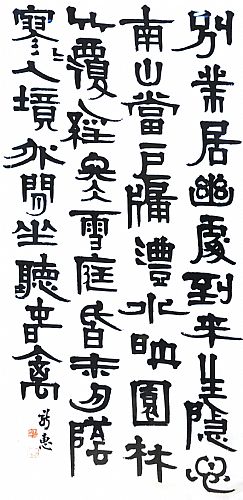 別業居幽處到来生隱心
南山當戶牖澧水映園林
竹覆經冬雪庭昏未夕陰
寥〻人境外閒坐聽春禽